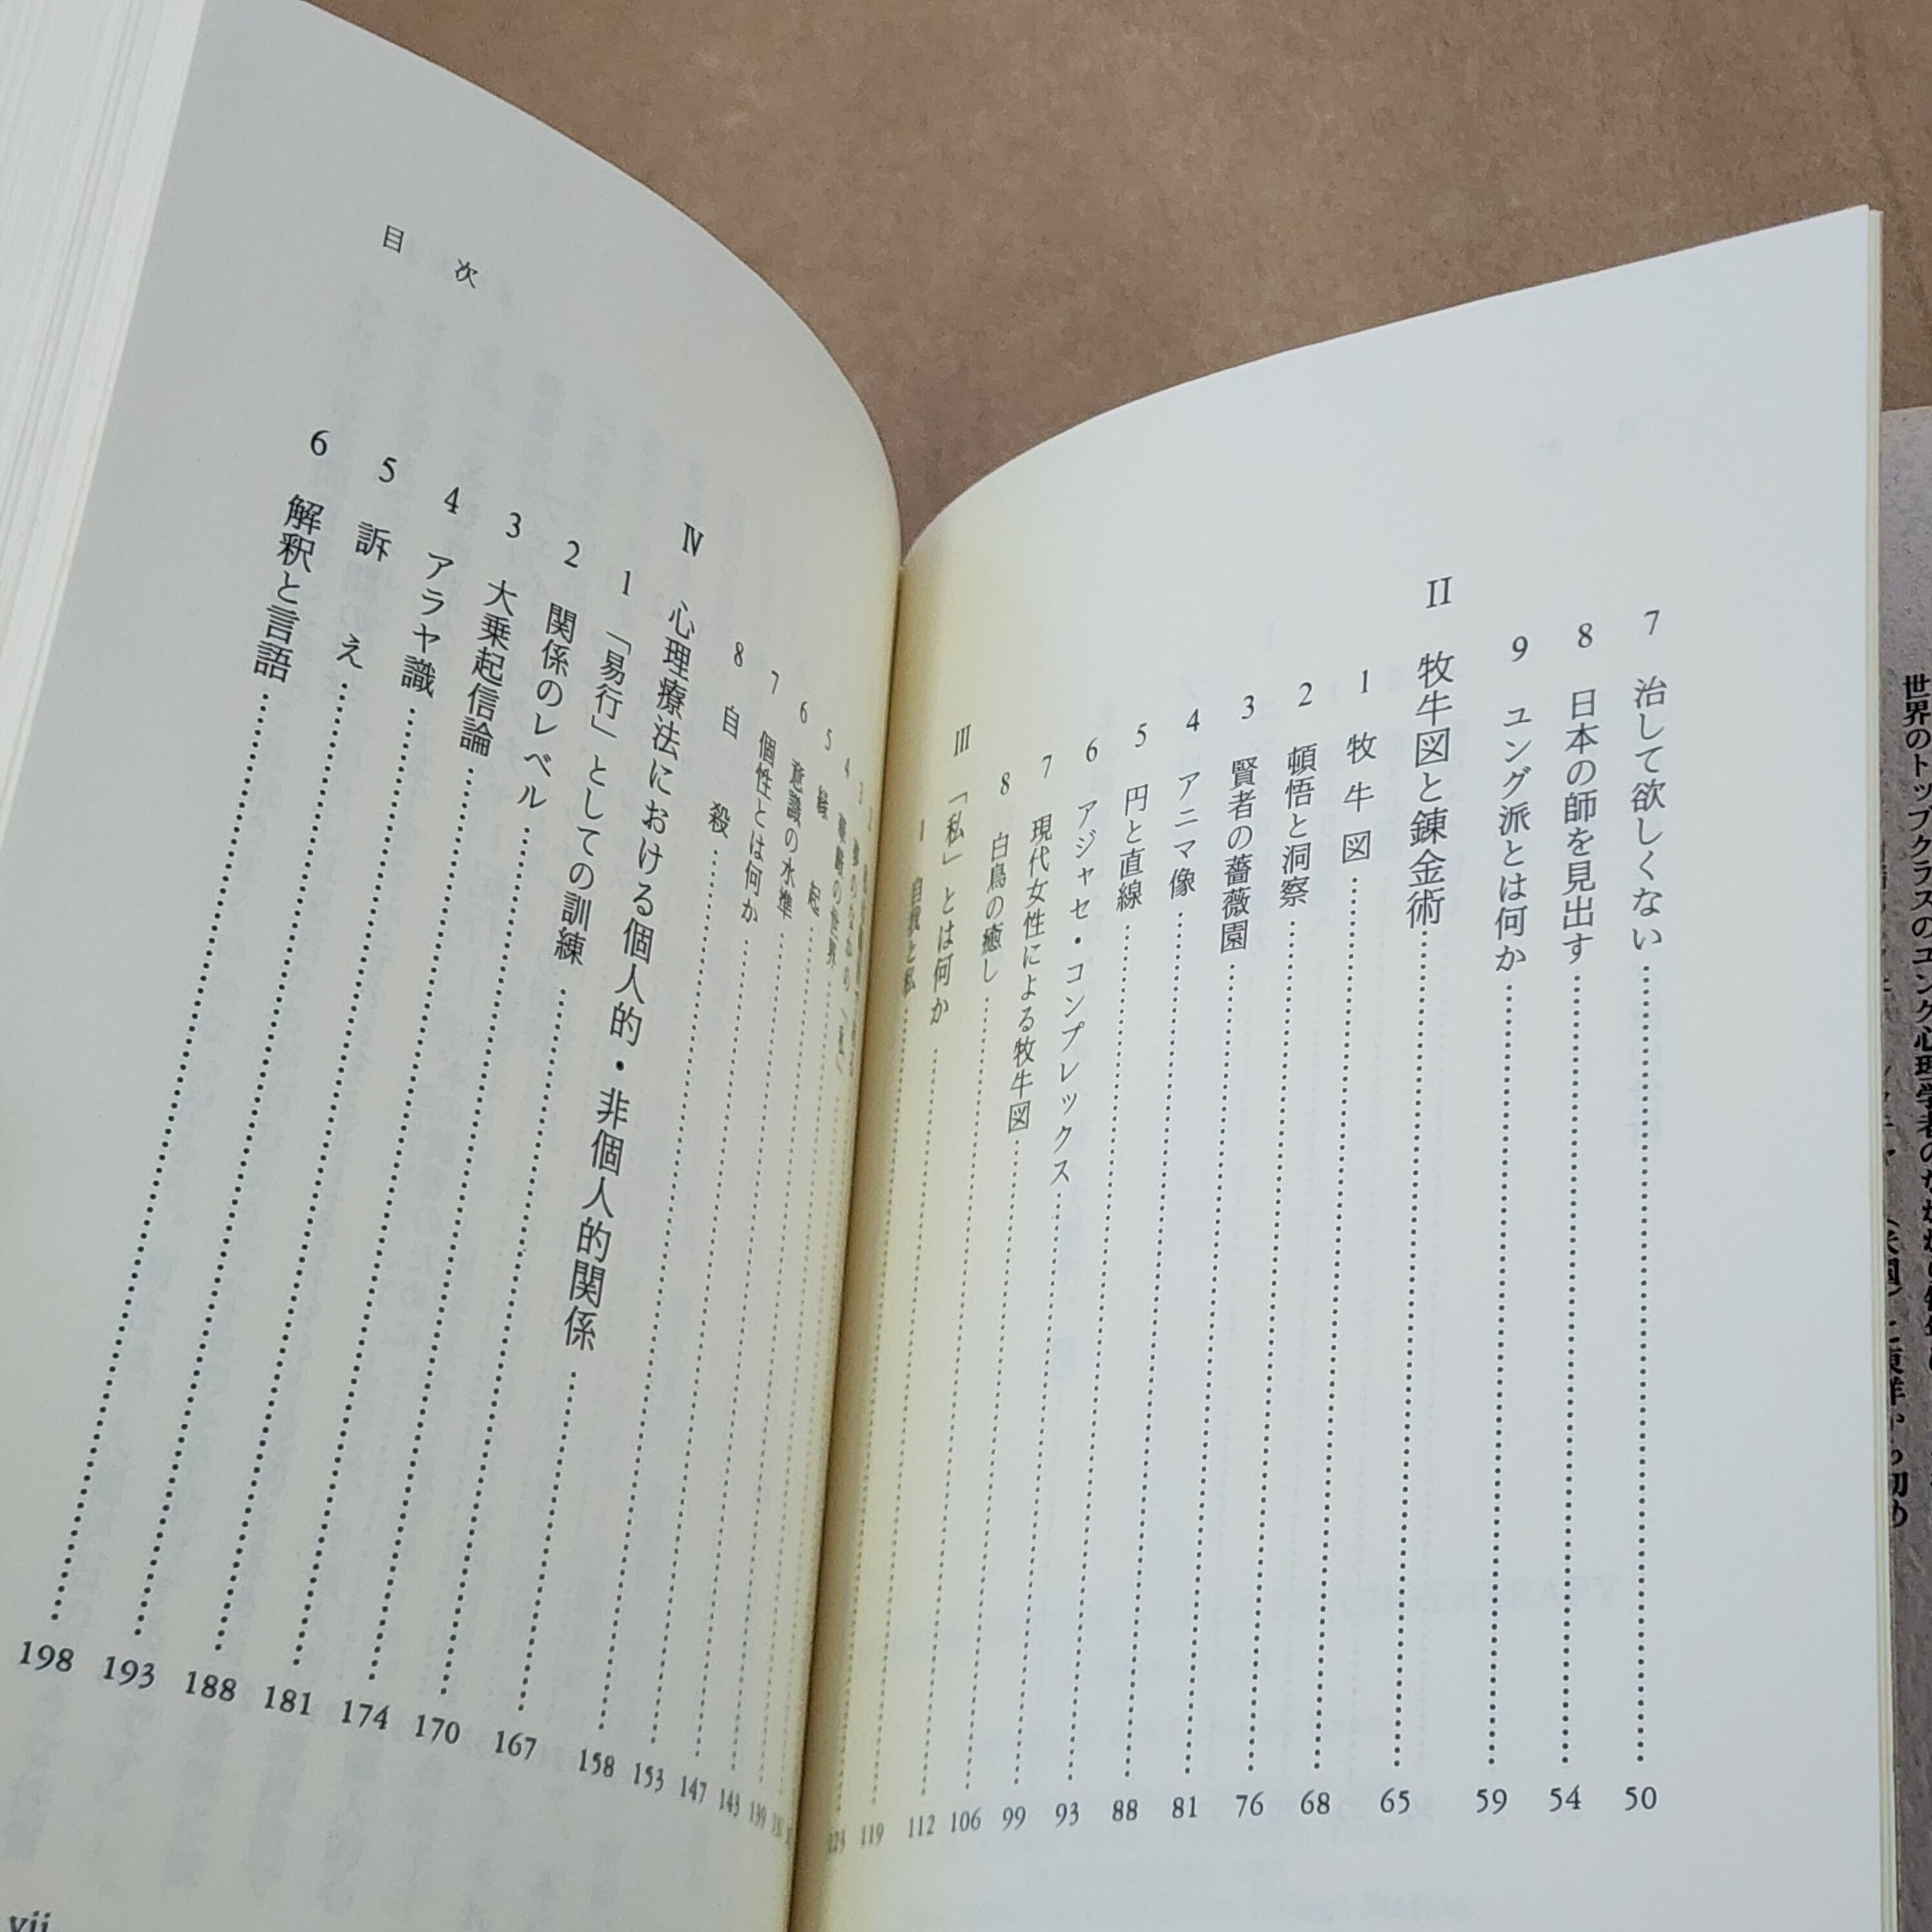 7 治して欲しくない……50
8 日本の師を見出す……54
9 ユング派とは何か……59
II 牧牛図と錬金術……65
1 牧牛図……68
2 頓悟と洞察……76
3 賢者の薔薇園……81
4 アニマ像……88
5 円と直線……93
6 アジャセ・コンプレックス……99
7 現代女性による牧牛図……106
8 白鳥の癒し……112
III 「私」とは何か……119
1 自我と私……123
目次
2
3
4 華厳の世界……139
5 縁起……143
6 意識の水準……147
7 個性とは何か……153
8 自殺……158
IV 心理療法における個人的・非個人的関係……167
1 「易行」としての訓練……170
2 関係のレベル……174
3 大乗起信論……181
4 アラヤ識……188
5 訴え……193
6 解釈と言語……198
vii
世界のトップクラスのユング心理学者の